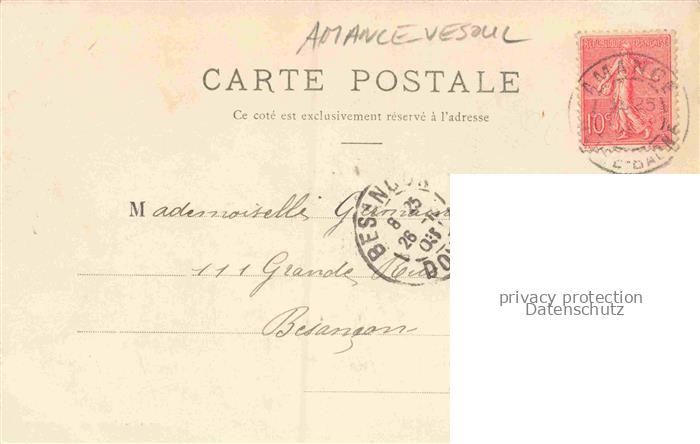 AMANCE-VESOUL
CARTE POSTALE
Ce coté est exclusivement réservé à l'adresse
REPUBLIQUE FRANÇAISE
10c
AMANCE
25
TE-SAONE
BESANÇON
8 25
26
DOU
Mademoiselle Germaine
111 Grande Rue
Besançon
privacy protection
Datenschutz